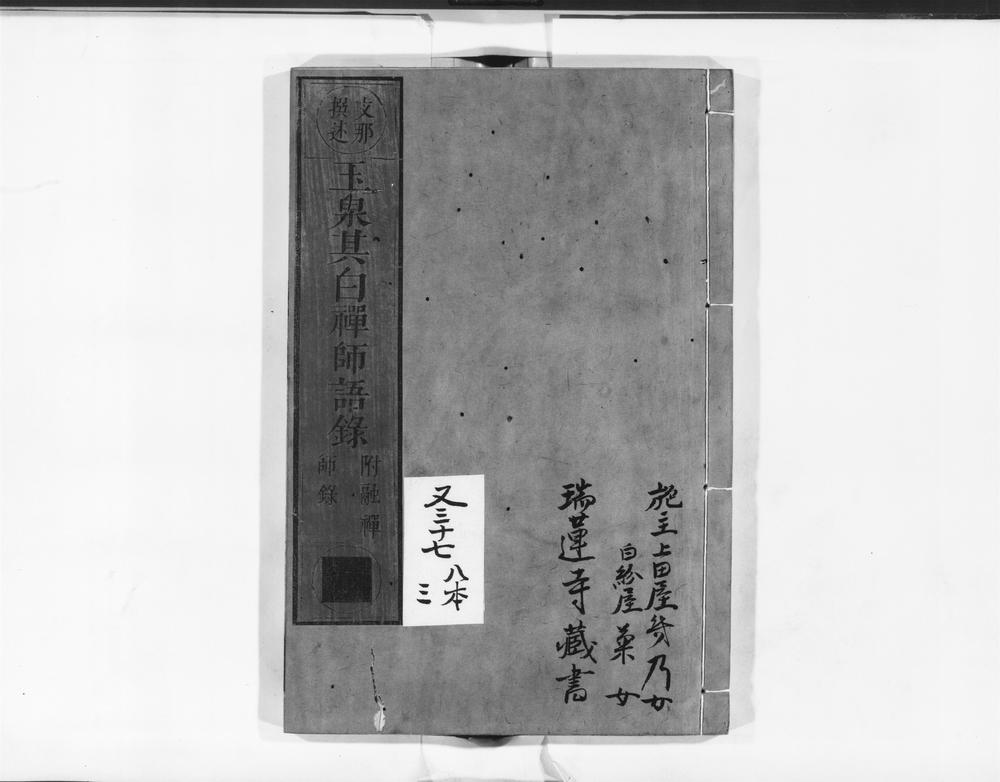 施主上田屋幾乃女
白絵屋菊女
瑞蓮寺藏書
又三十七
八本
三
支那
撰述
玉泉其白禪師語錄
附融禪
師錄